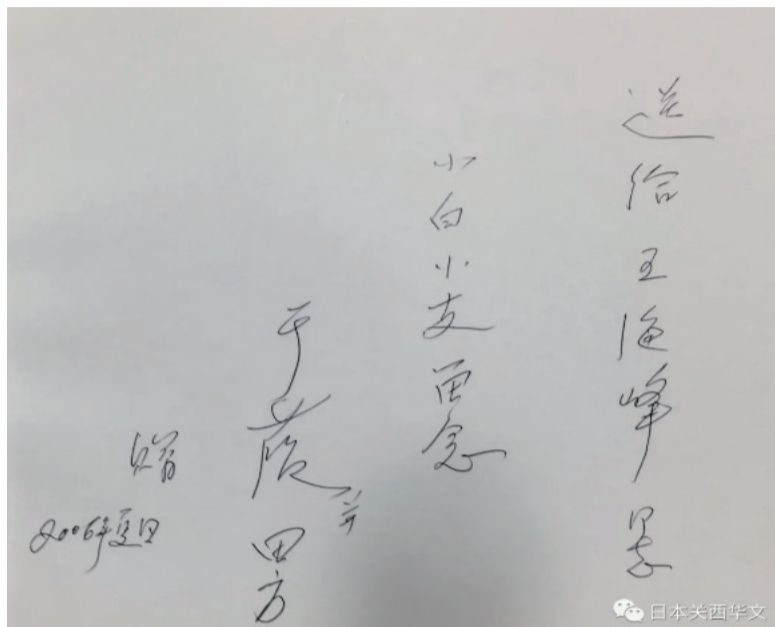 送给王海峰
小白小友留念
于
田方
赠
2006年夏日
日本关西华文